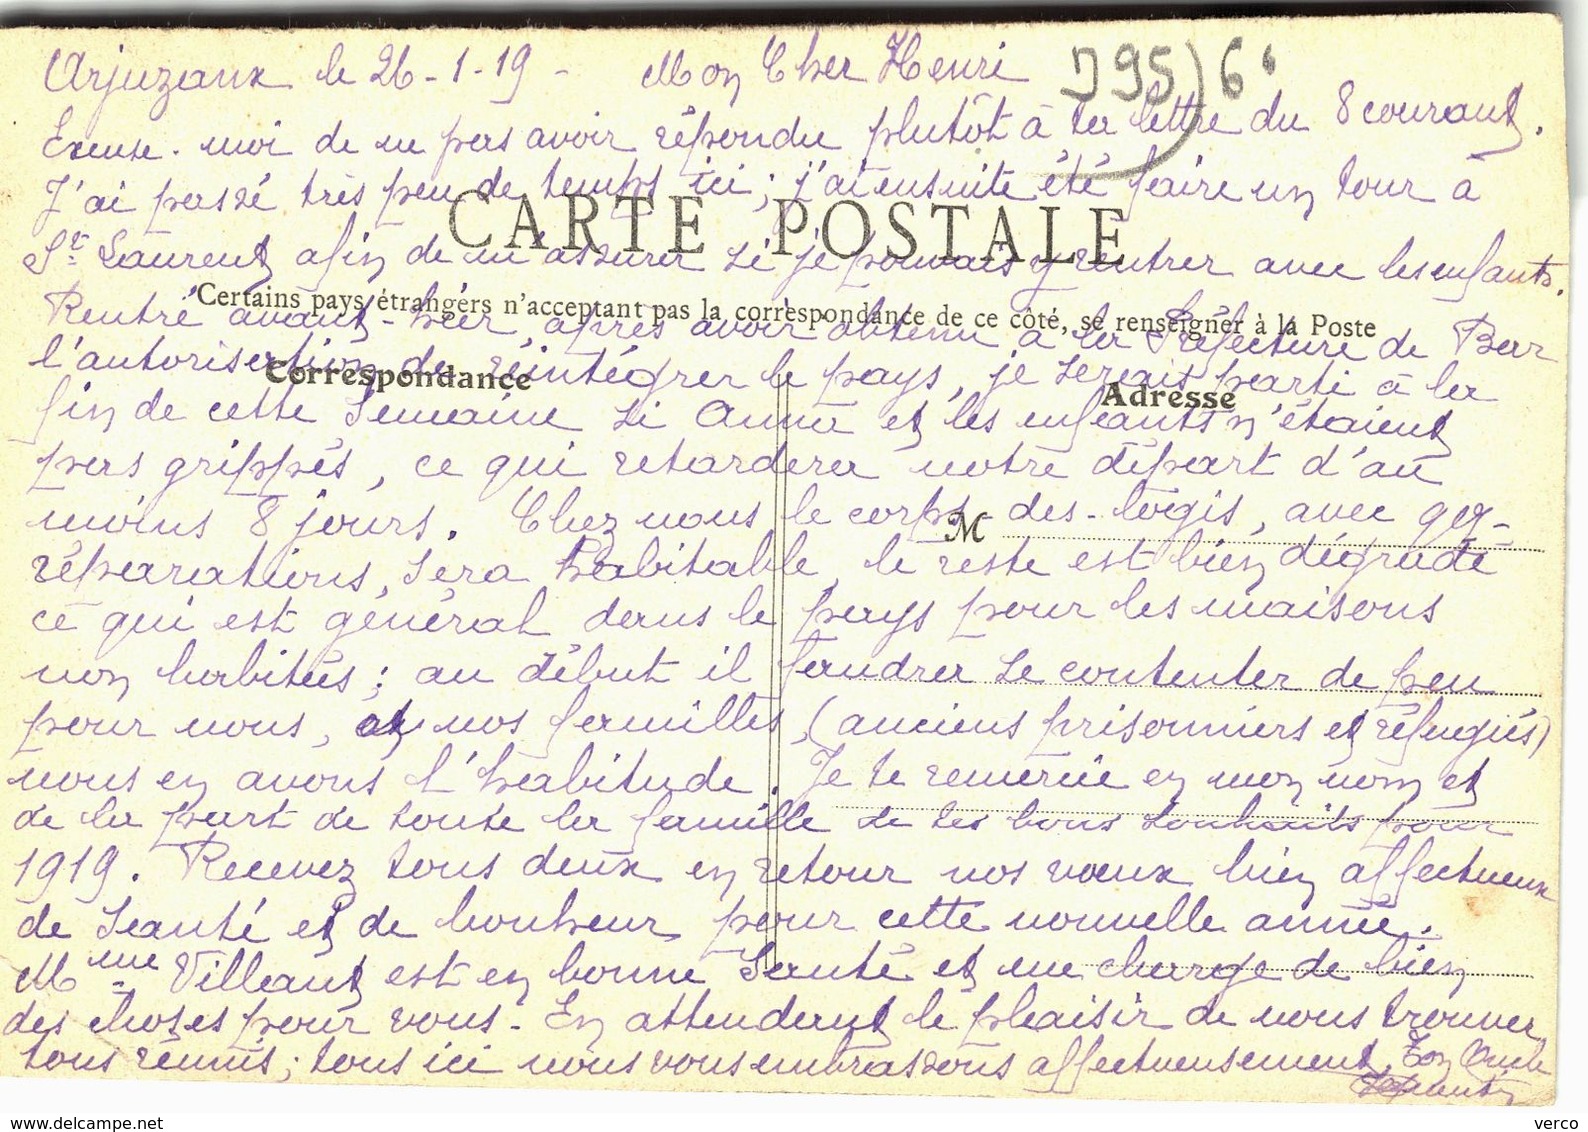 Arjuzanx le 26-1-19 - Mon Cher Henri
J95) 6
Excuse-moi de ne pas avoir répondu plutôt à ta lettre du 8 courant.
J'ai passé très peu de temps ici; j'ai ensuite été faire un tour à
CARTE POSTALE
St. Laurent afin de m'assurer si je pouvais y rentrer avec les enfants.
Certains pays étrangers n'acceptant pas la correspondance de ce côté, se renseigner à la Poste
Rentré avant-hier, après avoir obtenu à la Préfecture de Bar
l'autorisation de réintégrer le pays, je serait parti à la
Correspondance
Adresse
fin de cette Semaine si Anna et les enfants n'étaient
pas grippés, ce qui retardera notre départ d'au
moins 8 jours. Chez nous le corps-des-logis, avec qq-
M
réparations, sera habitable, le reste est bien dégradé
ce qui est général dans le pays pour les maisons
non habitées; au début il faudra se contenter de peu
pour nous, et nos familles, (anciens prisonniers et réfugiés)
nous en avons l'habitude. Je te remercie en mon nom et
de la part de toute la famille de tes bons souhaits pour
1919. Recevez tous deux en retour nos vœux bien affectueux
de Santé et de bonheur pour cette nouvelle année.
Mme Villeant est en bonne Santé et me charge de bien
des choses pour vous. En attendant le plaisir de nous trouver
tous réunis; tous ici nous vous embrassons affectueusement, Ton Oncle
verco